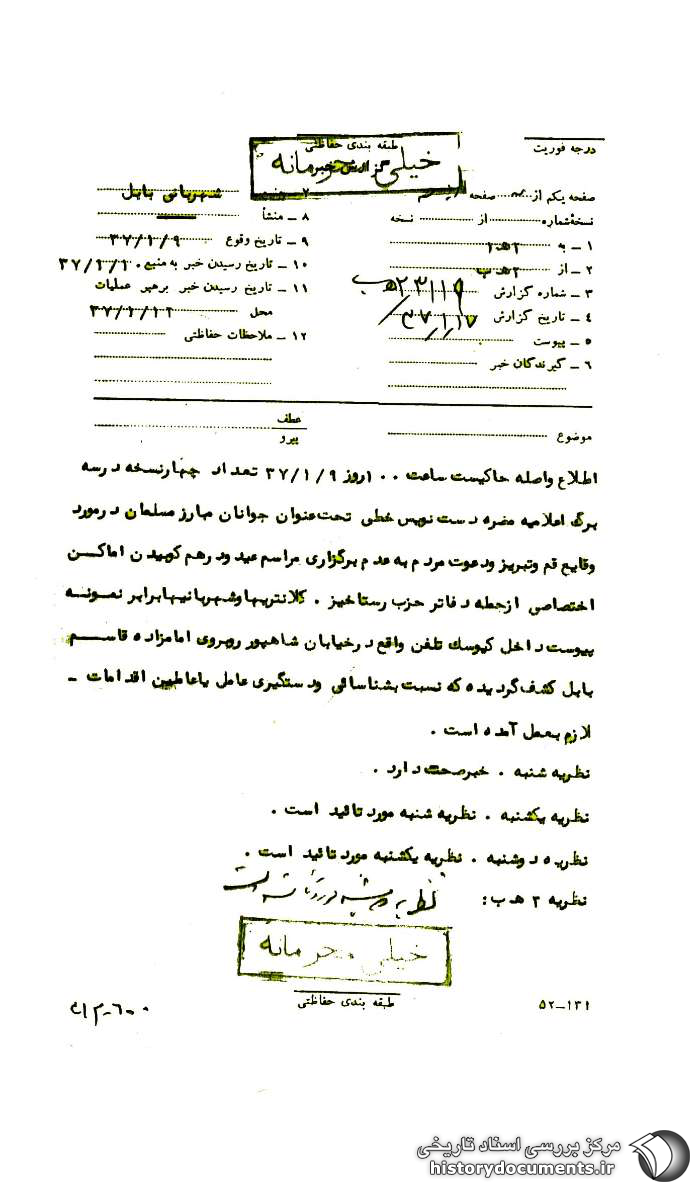 درجه فوریت
طبقه بندی حفاظتی
خیلی محرمانه
گزارش خبر
صفحه یکم از صفحه
نسخهٔ شماره از نسخه
۱ ـ به ۲هـ۱
۲ ـ از ۲هـ ب
۳ ـ شماره گزارش ۲۳۱۱۹هـ ب
۴ ـ تاریخ گزارش
۵ ـ پیوست
۶ ـ گیرندگان خبر
شهربانی بابل
۸ ـ منشأ
۹ ـ تاریخ وقوع ۳۷/۱/۹
۱۰ ـ تاریخ رسیدن خبر به منبع ۳۷/۱/۱۰
۱۱ ـ تاریخ رسیدن خبر برهبر عملیات
محل ۳۷/۱/۱۲
۱۲ ـ ملاحظات حفاظتی
موضوع
عطف
پیرو
اطلاع واصله حاکیست ساعت ۱۰۰ روز ۳۷/۱/۹ تعداد چهارنسخه درسه
برگ اعلامیه مضره دست نویس خطی تحت عنوان جوانان مبارز مسلمان درمورد
وقایع قم وتبریز ودعوت مردم به عدم برگزاری مراسم عید ودرهم کوبیدن اماکن
اختصاصی ازجمله دفاتر حزب رستاخیز . کلانتریها وشهربانیها برابر نمونه
پیوست داخل کیوسک تلفن واقع درخیابان شاهپور روبروی امامزاده قاسم
بابل کشف گردیده که نسبت بشناسائی ودستگیری عامل یاعاملین اقدامات ـ
لازم بعمل آمده است .
نظریه شنبه . خبرصحت دارد .
نظریه یکشنبه . نظریه شنبه مورد تائید است .
نظریه دوشنبه . نظریه یکشنبه مورد تائید است .
نظریه ۲ هـ ب : نظریه دوشنبه مورد تائید است
خیلی محرمانه
طبقه بندی حفاظتی
۵۲-۱۳۱
مرکز بررسی اسناد تاریخی
historydocuments.ir